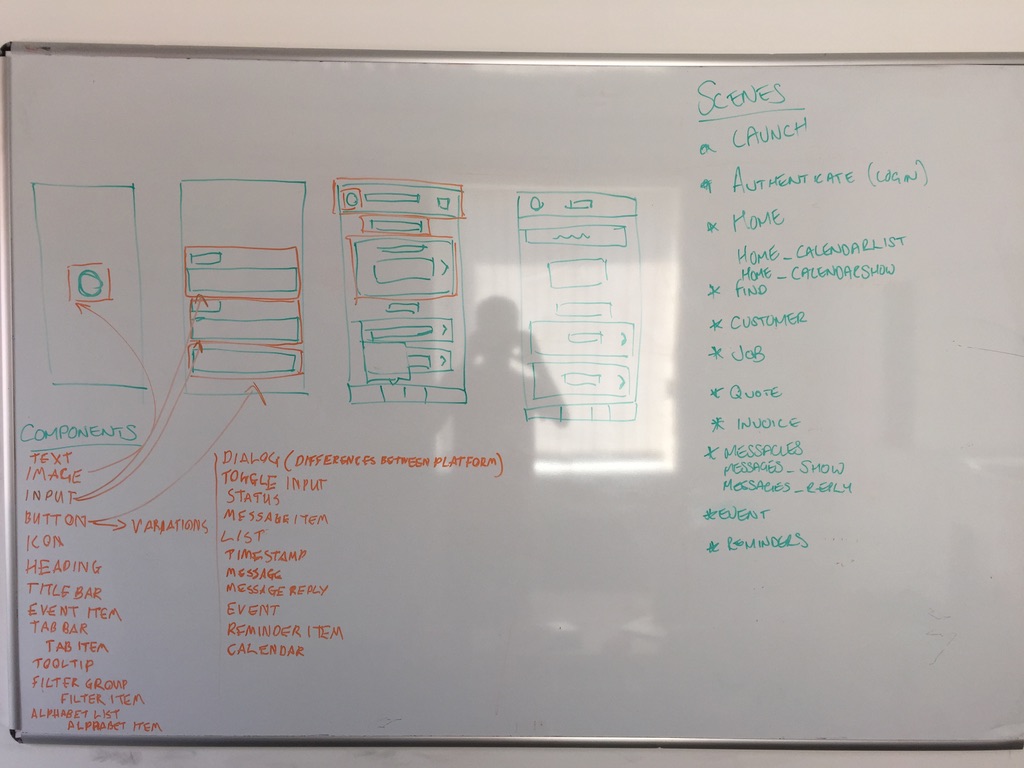 SCENES
* LAUNCH
* AUTHENTICATE (LOGIN)
* HOME
HOME_CALENDARLIST
HOME_CALENDARSHOW
* FIND
* CUSTOMER
* JOB
* QUOTE
* INVOICE
* MESSAGES
MESSAGES_SHOW
MESSAGES_REPLY
* EVENT
* REMINDERS
COMPONENTS
TEXT
IMAGE
INPUT
BUTTON → VARIATIONS
ICON
HEADING
TITLE BAR
EVENT ITEM
TAB BAR
TAB ITEM
TOOLTIP
FILTER GROUP
FILTER ITEM
ALPHABET LIST
ALPHABET ITEM
DIALOG (DIFFERENCES BETWEEN PLATFORM)
TOGGLE INPUT
STATUS
MESSAGE ITEM
LIST
TIMESTAMP
MESSAGE
MESSAGE REPLY
EVENT
REMINDER ITEM
CALENDAR